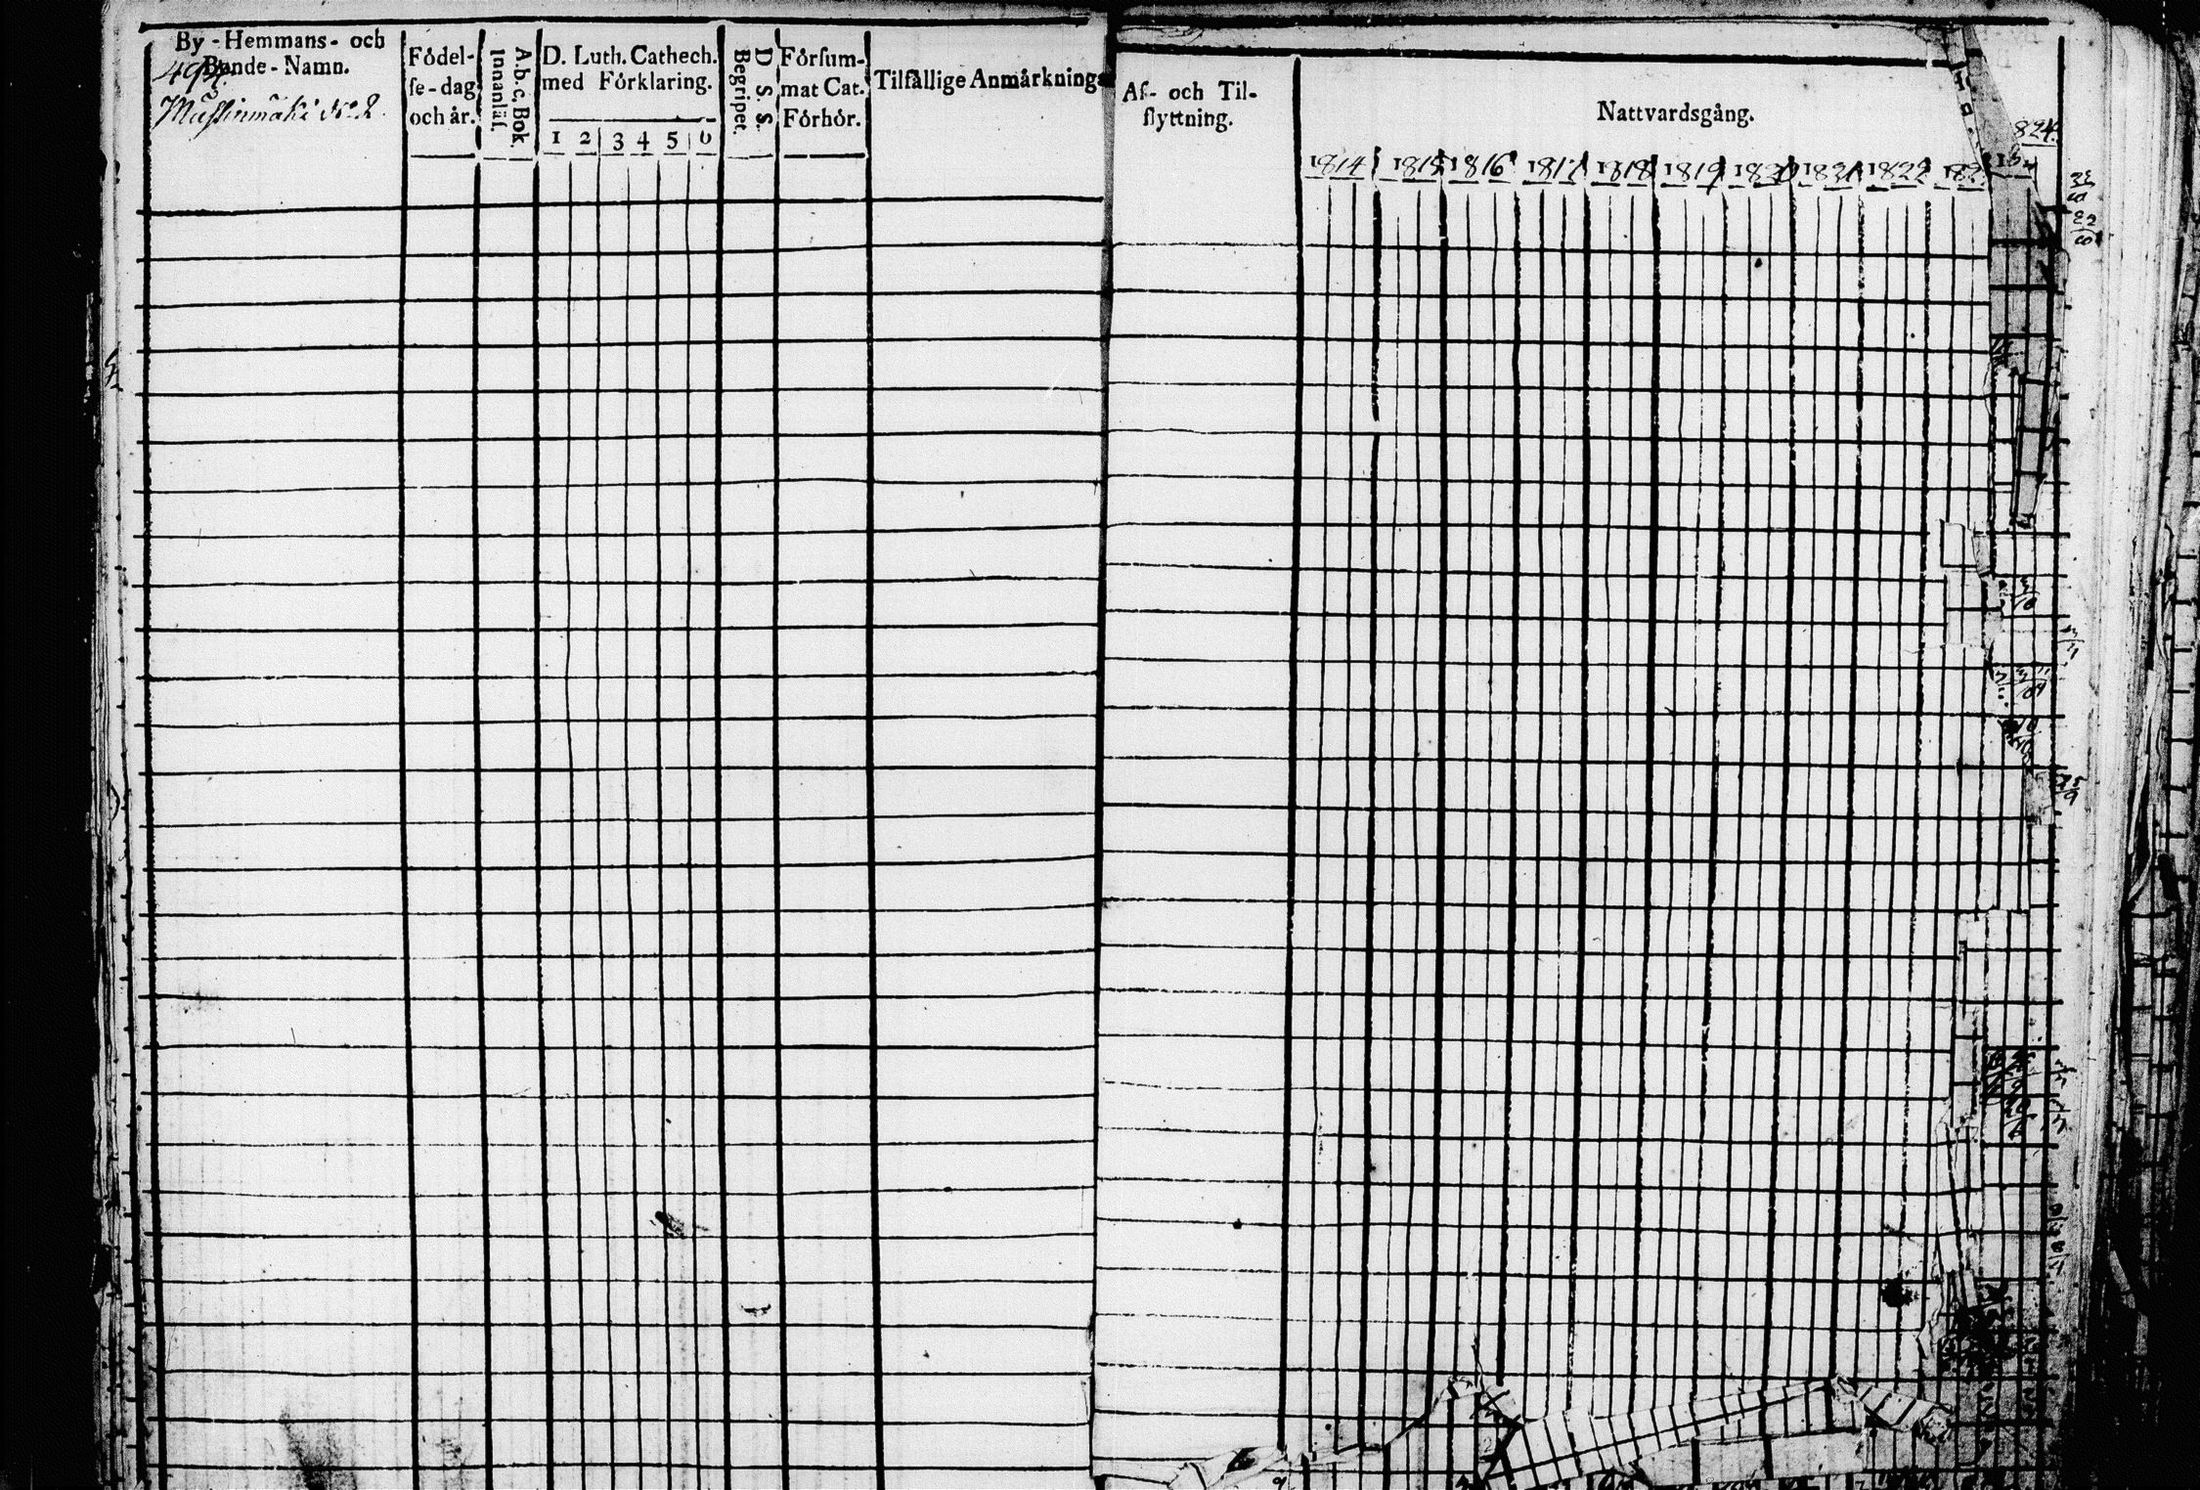 By-Hemmans- och
Bonde-Namn.
494.
Mustinmäki No 2.
Födel-
se-dag
och år.
A.b.c. Bok.
Innanläs.
D. Luth. Cathech.
med Förklaring.
1 2 3 4 5 6
D. S. S.
Begripet.
Försum-
mat Cat.
Förhör.
Tilfällige Anmärkning
Af- och Til-
flyttning.
Nattvardsgång.
1814 1815 1816 1817 1818 1819 1820 1821 1822 182
824.